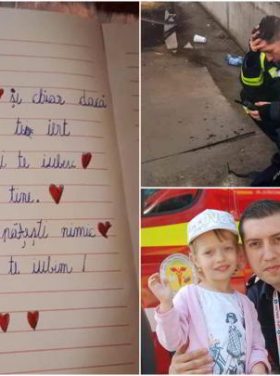 și chiar dacă
te iert
i te iubesc
tine.
pățești nimic
te iubim !